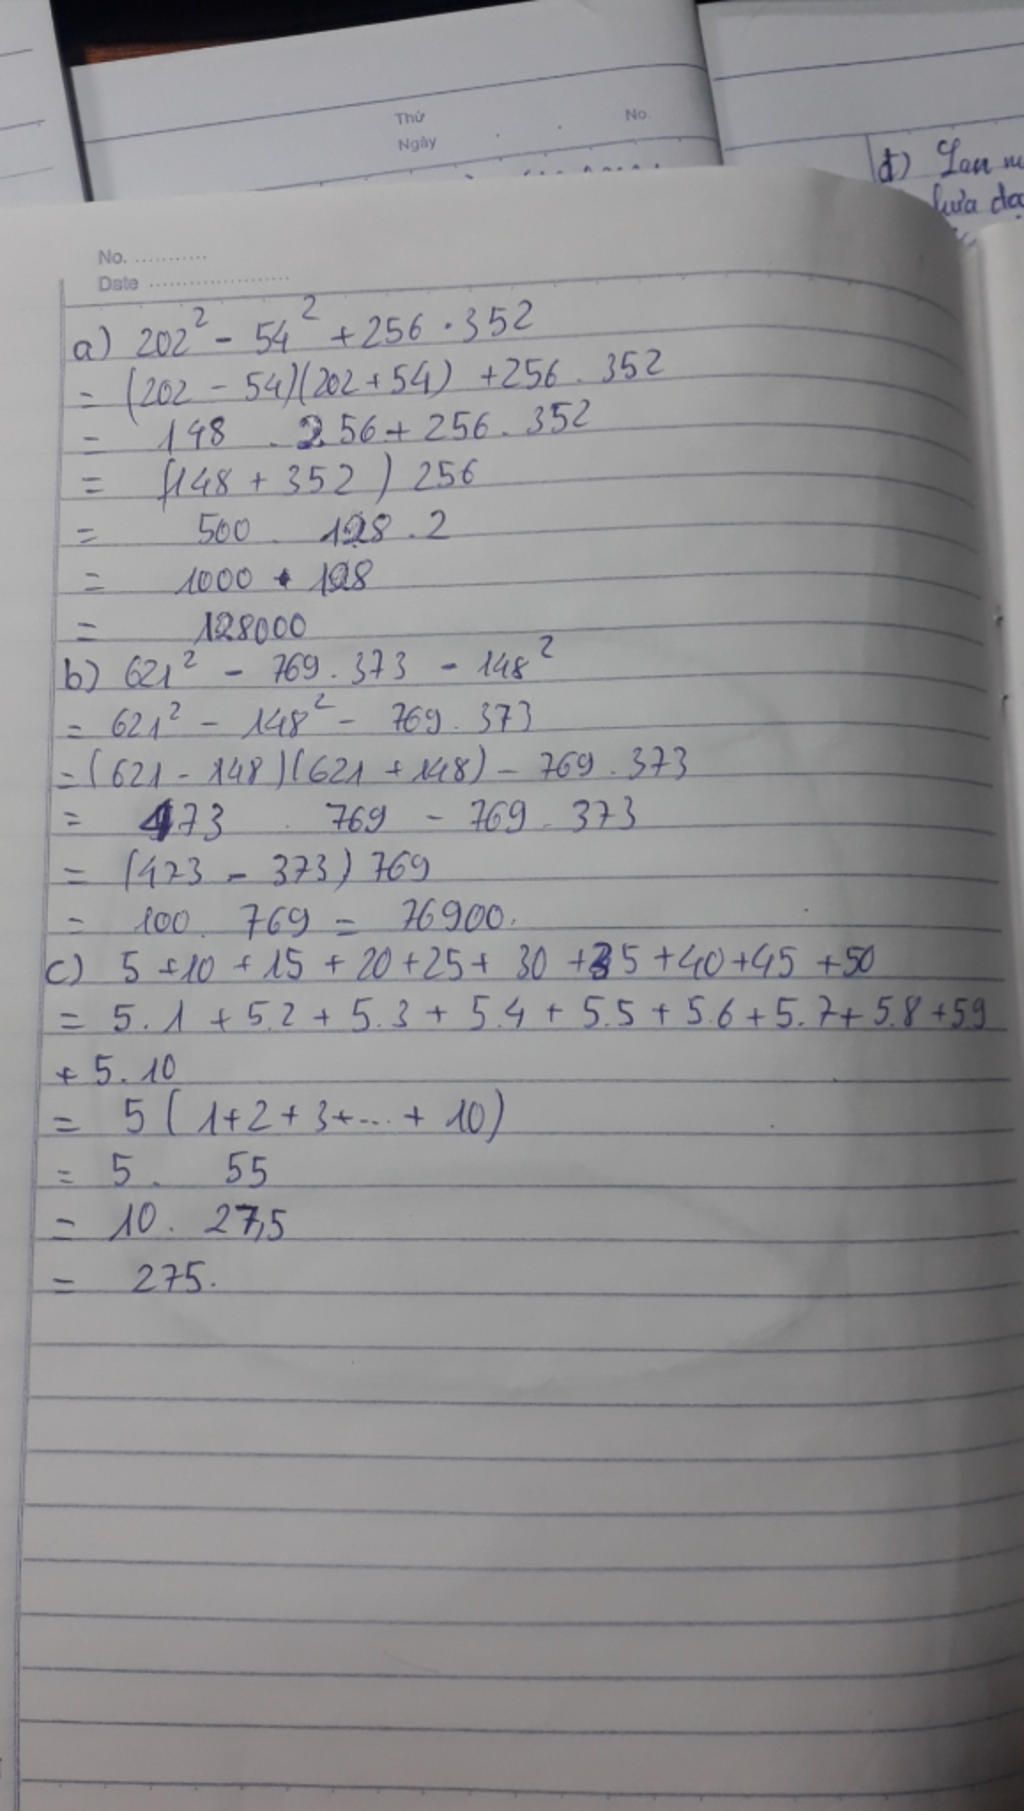 Thứ
Ngày
No.
đ) Lan
No. ............
Date ......................
a) 202² - 54² + 256 . 352
= (202 - 54)(202 + 54) + 256 . 352
= 148 . 256 + 256 . 352
= (148 + 352) 256
= 500 . 128 . 2
= 1000 . 128
= 128000
b) 621² - 769 . 373 - 148²
= 621² - 148² - 769 . 373
= (621 - 148)(621 + 148) - 769 . 373
= 473 . 769 - 769 . 373
= (473 - 373) 769
= 100 . 769 = 76900.
c) 5 + 10 + 15 + 20 + 25 + 30 + 35 + 40 + 45 + 50
= 5.1 + 5.2 + 5.3 + 5.4 + 5.5 + 5.6 + 5.7 + 5.8 + 5.9
+ 5.10
= 5 ( 1+2+3+...+ 10)
= 5 . 55
= 10 . 27,5
= 275.